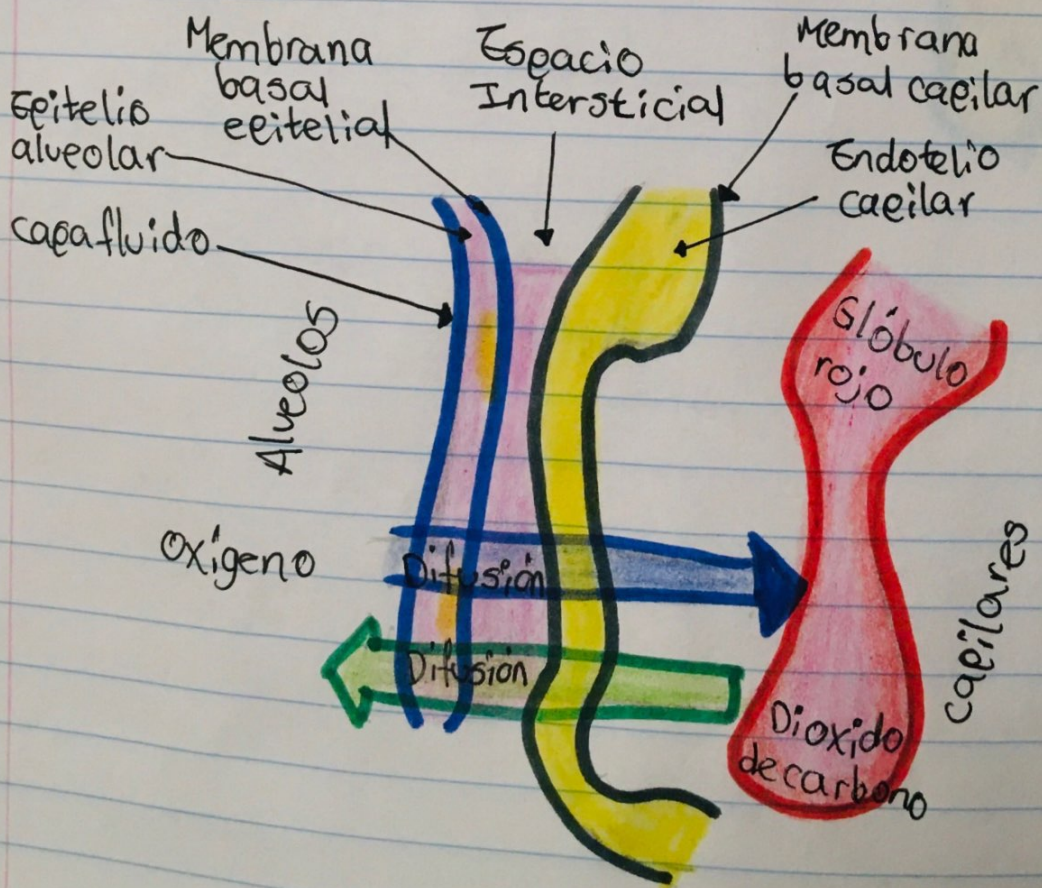 Membrana
basal
epitelial
Espacio
Intersticial
Membrana
basal capilar
Epitelio
alveolar
Endotelio
capilar
capafluido
Alveolos
Glóbulo
rojo
Oxígeno
Difusión
Difusión
capilares
Dioxido
de carbono